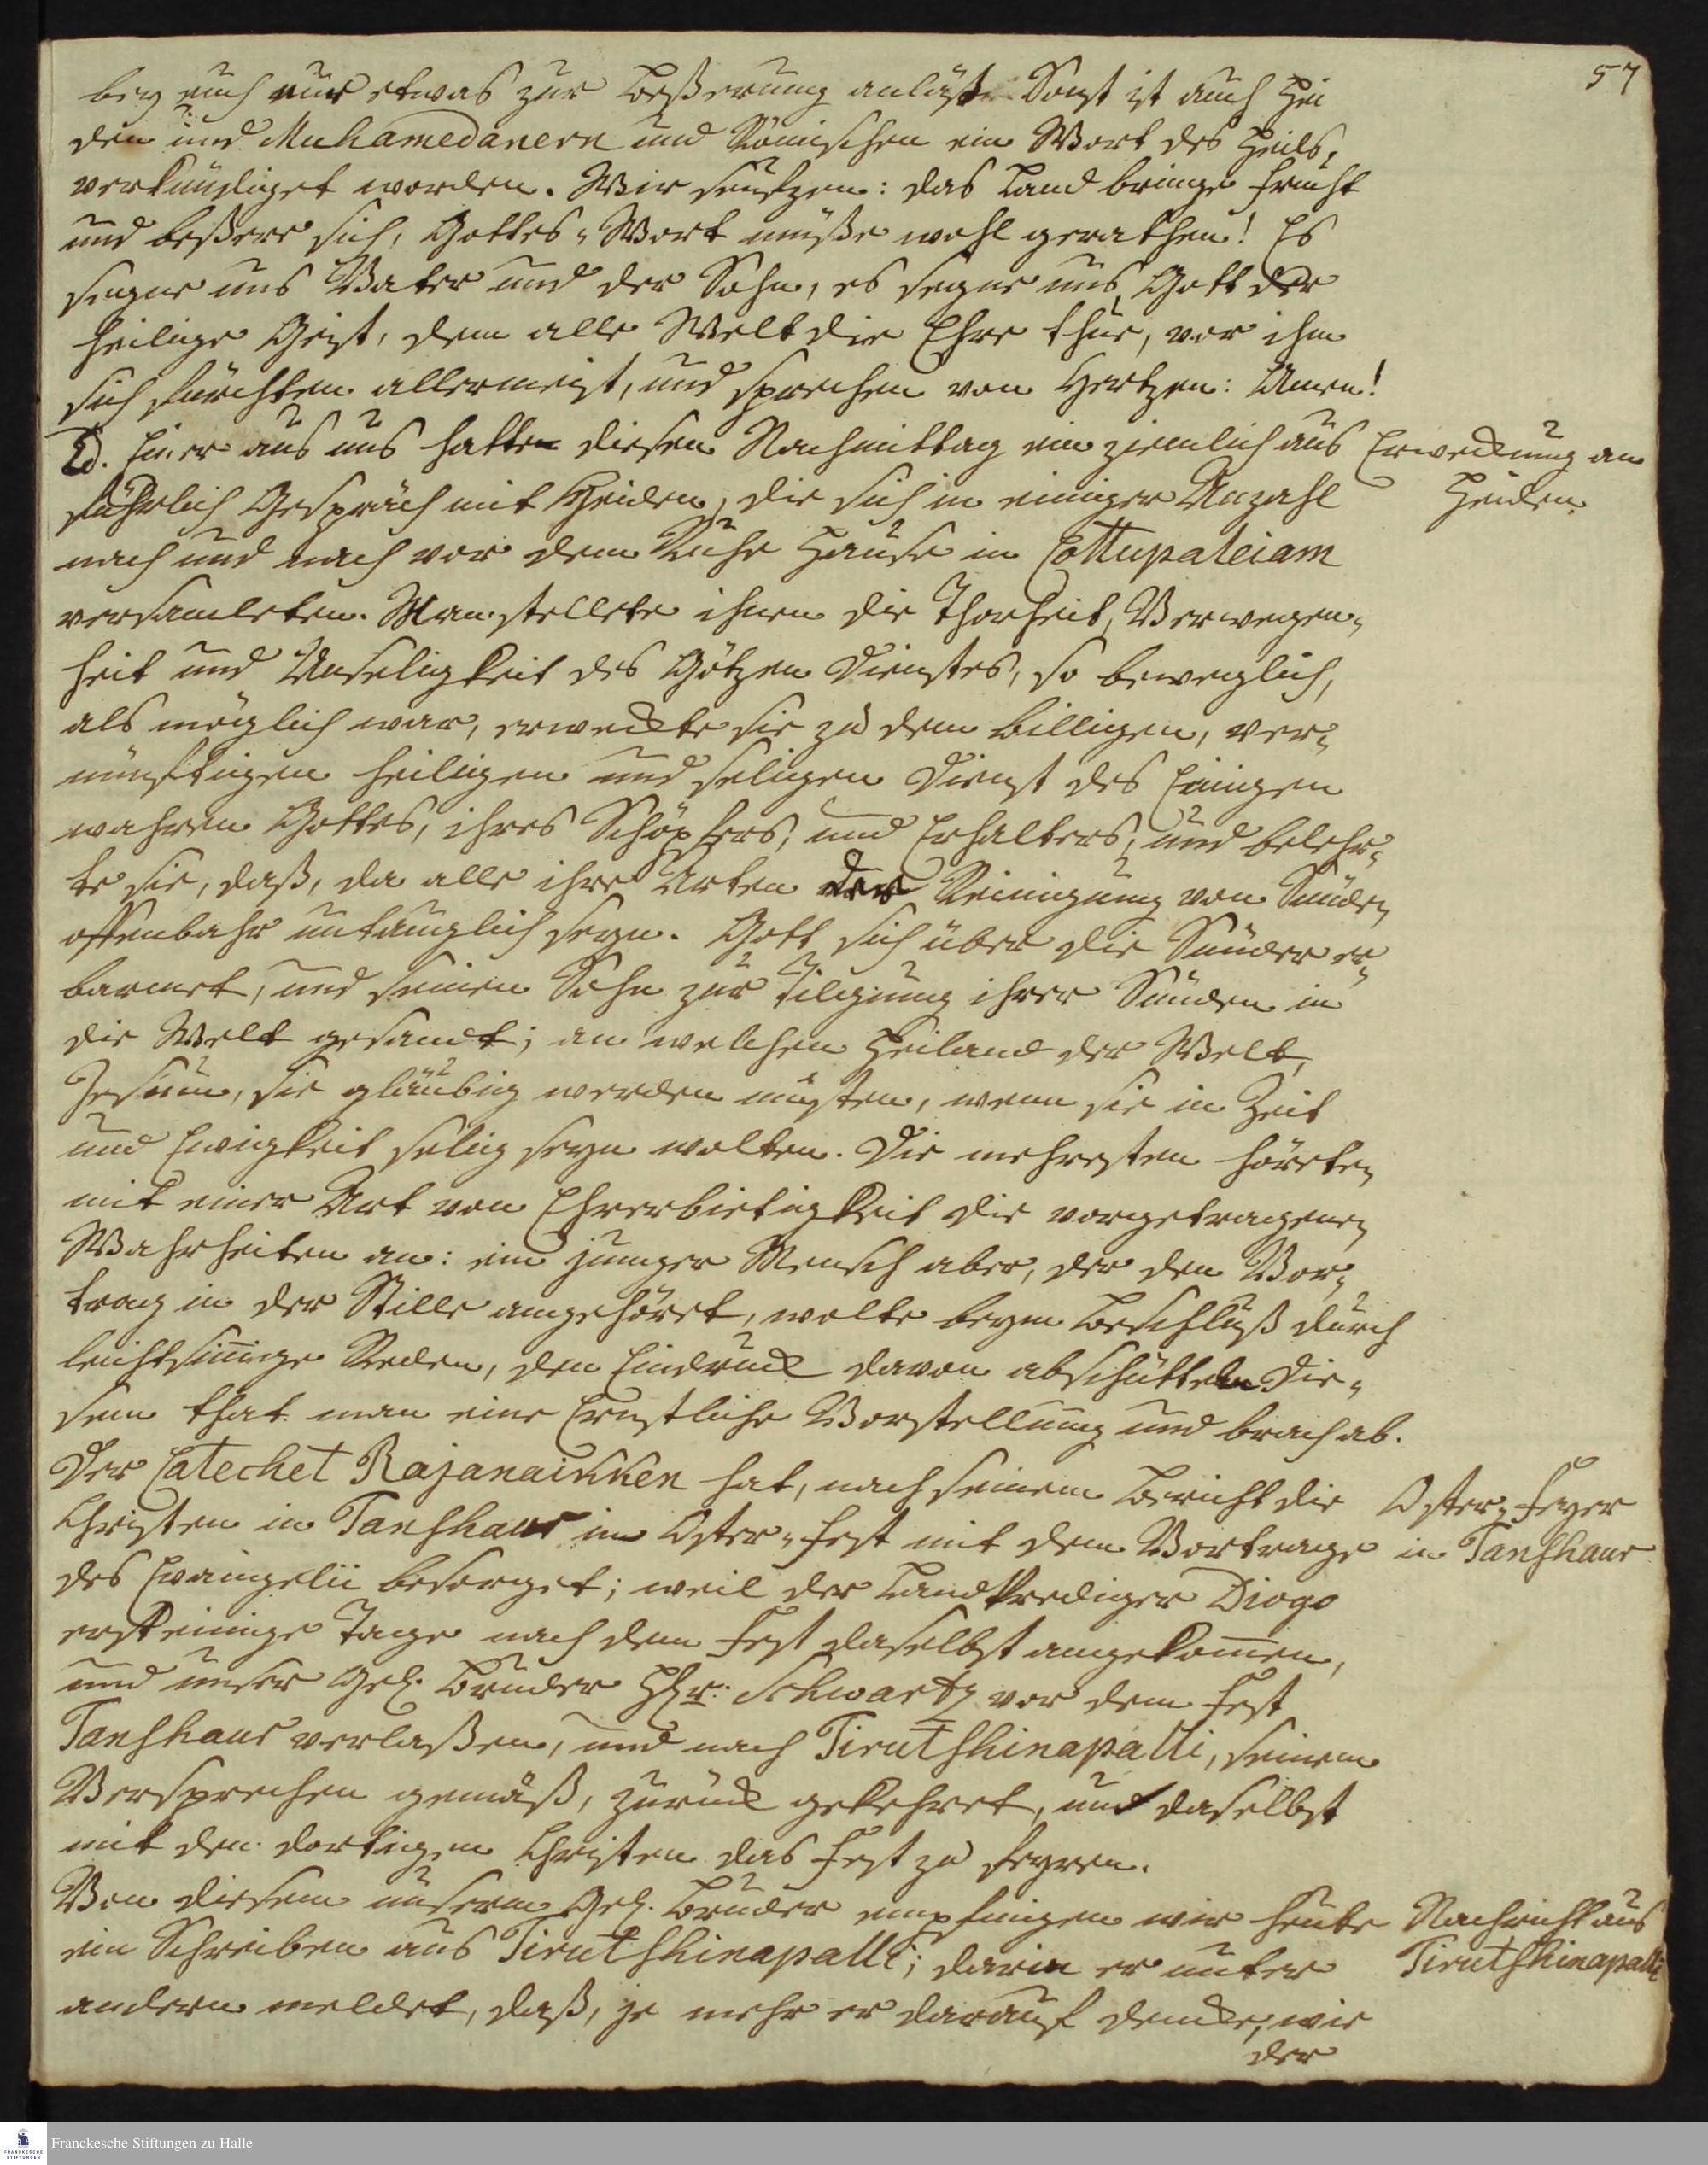 57
bey euch nur etwas zur Beßerung anläßt. Sonst ist auch Hei
den und Muhamedanern und Römischen ein Wort des Heils,
verkündiget worden. Wir seufzen: das Land bringe Frucht
und beßere sich, Gottes-Wort müße wohl gerathen! Es
segne uns Vater und der Sohn, es segne uns Gott der
heilige Geist, dem alle Welt die Ehre thue, vor ihm
sich fürchten allermeist, und sprechen von Hertzen: Amen!
Ed. Einer aus uns hatte diesen Nachmittag ein ziemlich aus
führlich Gespräch mit Heiden, die sich in einiger Anzahl
Erweckung an
Heiden.
nach und nach vor dem Ruhe Hause in Cottupaleiam
versamleten. Man stellete ihnen die Thorheit, Verwegen-
heit und Unseligkeit des Götzen Dienstes, so beweglich,
als möglich war, erweckte sie zu dem billigen, ver-
nünftigen heiligen und seligen Dienst des Einigen
wahren Gottes, ihres Schöpfers, und Erhalters, und belehr-
te sie, daß, da alle ihre Arten der Reinigung von Sünden
offenbahr untauglich seyn. Gott sich über die Sünder er-
barmet, und seinen Sohn zur Tilgung ihrer Sünden in
die Welt gesandt; an welchen Heiland der Welt,
Jesum, sie gläubig werden müsten, wenn sie in Zeit
und Ewigkeit selig seyn wolten. Die mehresten höreten
mit einer Art von Ehrerbietigkeit die vorgetragenen
Wahrheiten an: ein junger Mensch aber, der den Vor-
trag in der Stille angehöret, wolte beym Beschluß durch
leichtsinnige Reden, den Eindruck davon abschütteln Die-
sem that man eine Ernstliche Vorstellung und brach ab.
Der Catechet Rajanaikken hat, nach seinem Bericht die
Christen in Tanshaur im Oster-Fest mit dem Vortrage
Oster-Feyer
in Tanshaur
des Evangelii besorget; weil der Landprediger Diogo
erst einige Tage nach dem Fest daselbst angekommen,
und unser Gel. Bruder Hr: Schwartz vor dem Fest
Tanshaur verlaßen, und nach Tirutshinapalli, seinem
Versprechen gemäß, zurück gekehret, und daselbst
mit den dortigen Christen das Fest zu feyren.
Von diesem unserm Gel. Bruder empfingen wir heute
ein Schreiben aus Tirutshinapalli; darin er unter
Nachricht aus
Tirutshinapalli
andern meldet, daß, je mehr er darauf dencke, wie
der
Franckesche Stiftungen zu Halle
FRANCKESCHE
STIFTUNGEN